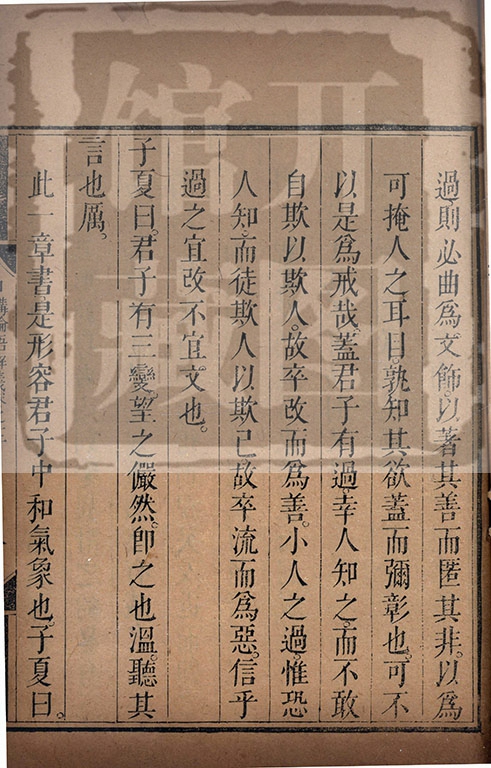 過則必曲爲文飾。以著其善而匿其非。以爲
可掩人之耳目。孰知其欲蓋而彌彰也。可不
以是爲戒哉。蓋君子有過。幸人知之。而不敢
自欺以欺人。故卒改而爲善。小人之過。惟恐
人知。而徒欺人以欺己。故卒流而爲惡。信乎
過之宜改不宜文也。
子夏曰。君子有三變。望之儼然。卽之也溫。聽其
言也厲。
此一章書。是形容君子中和氣象也。子夏曰。
開館
圖藏